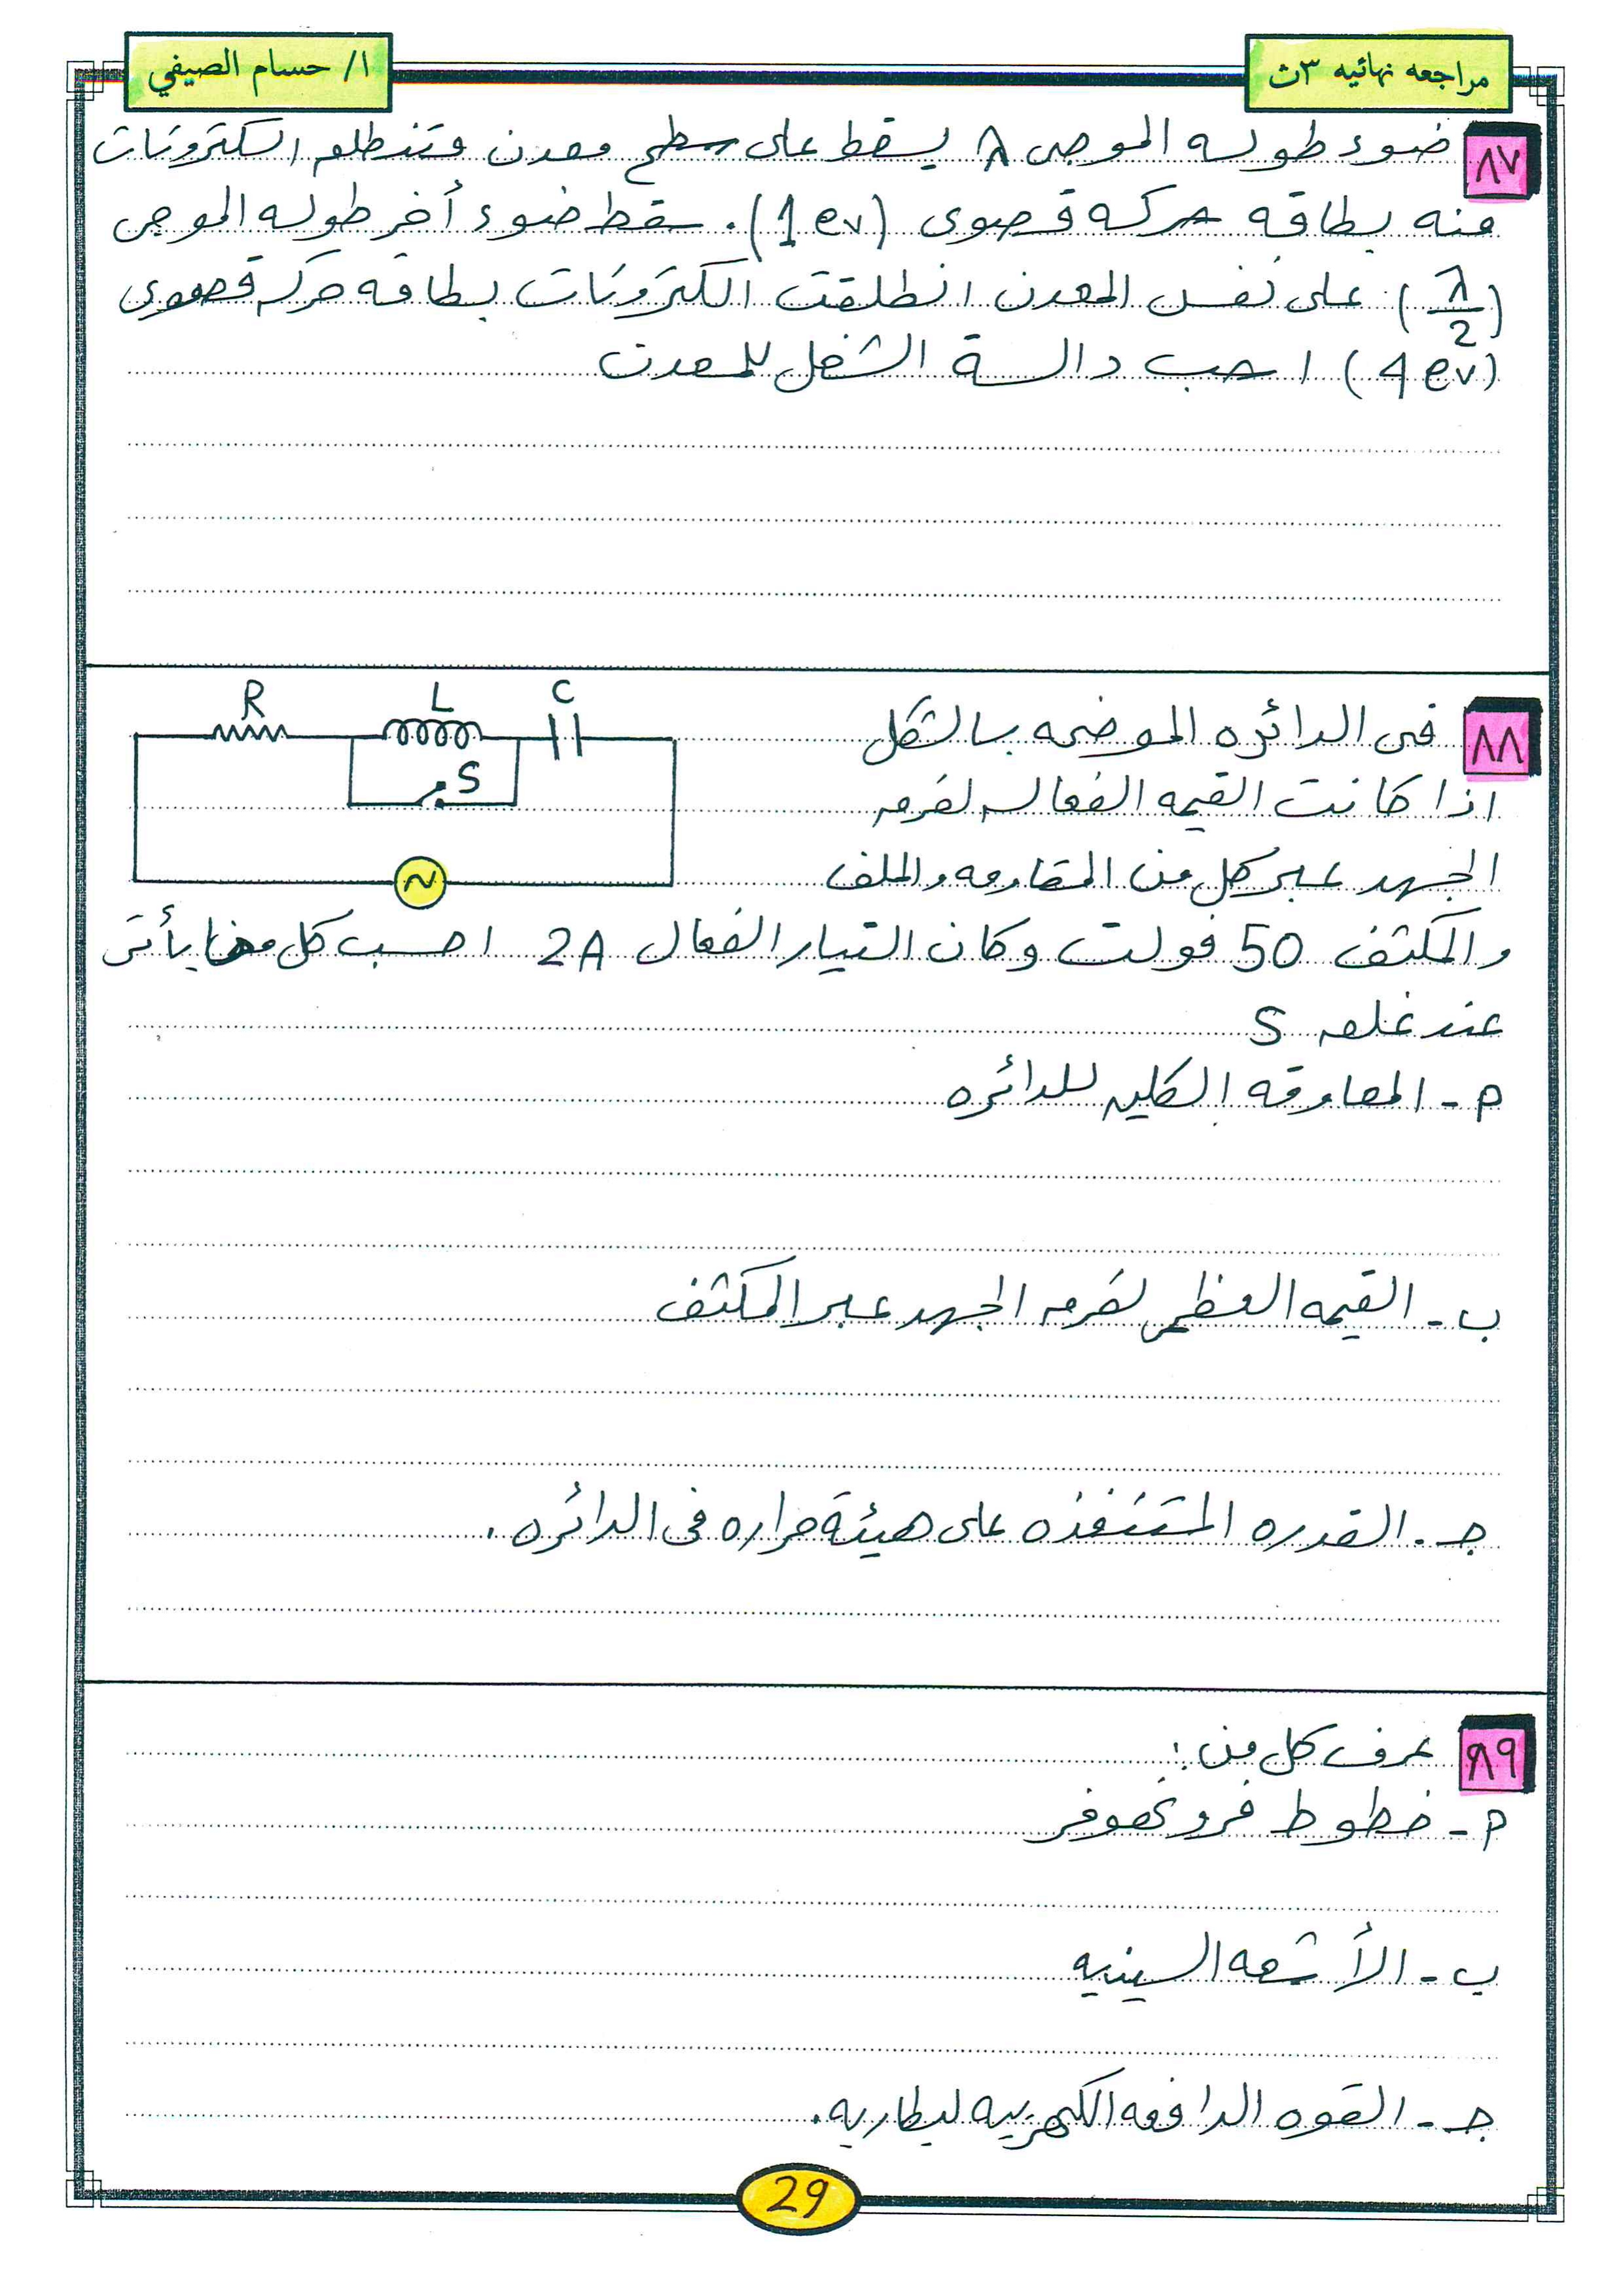 مراجعه نهائيه ٣ث
ا/ حسام الصيفي
٨٧ ضوء طوله الموجى λ يسقط على سطح معدن فتنطلق الكترونات
منه بطاقه حركه قصوى (1 ev). سقط ضوء أخر طوله الموجى
(λ/2) على نفس المعدن انطلقت الكترونات بطاقه حركه قصوى
(4 ev) احسب دالة الشغل للمعدن
R L C
S
~
٨٨ فى الدائره الموضحه بالشكل
اذا كانت القيمه الفعاله لفرق
الجهد عبر كل من المقاومه والملف
والمكثف 50 فولت وكان التيار الفعال 2A احسب كل مما يأتى
عند غلق S
م - المعاوقه الكليه للدائره
ب - القيمه العظمى لفرق الجهد عبر المكثف
جـ - القدره المستنفذه على هيئة حراره فى الدائره .
٨٩ عرف كل من :
م - خطوط فرونهوفر
ب - الأشعه السينيه
جـ - القوه الدافعه الكهربيه لبطاريه .
29